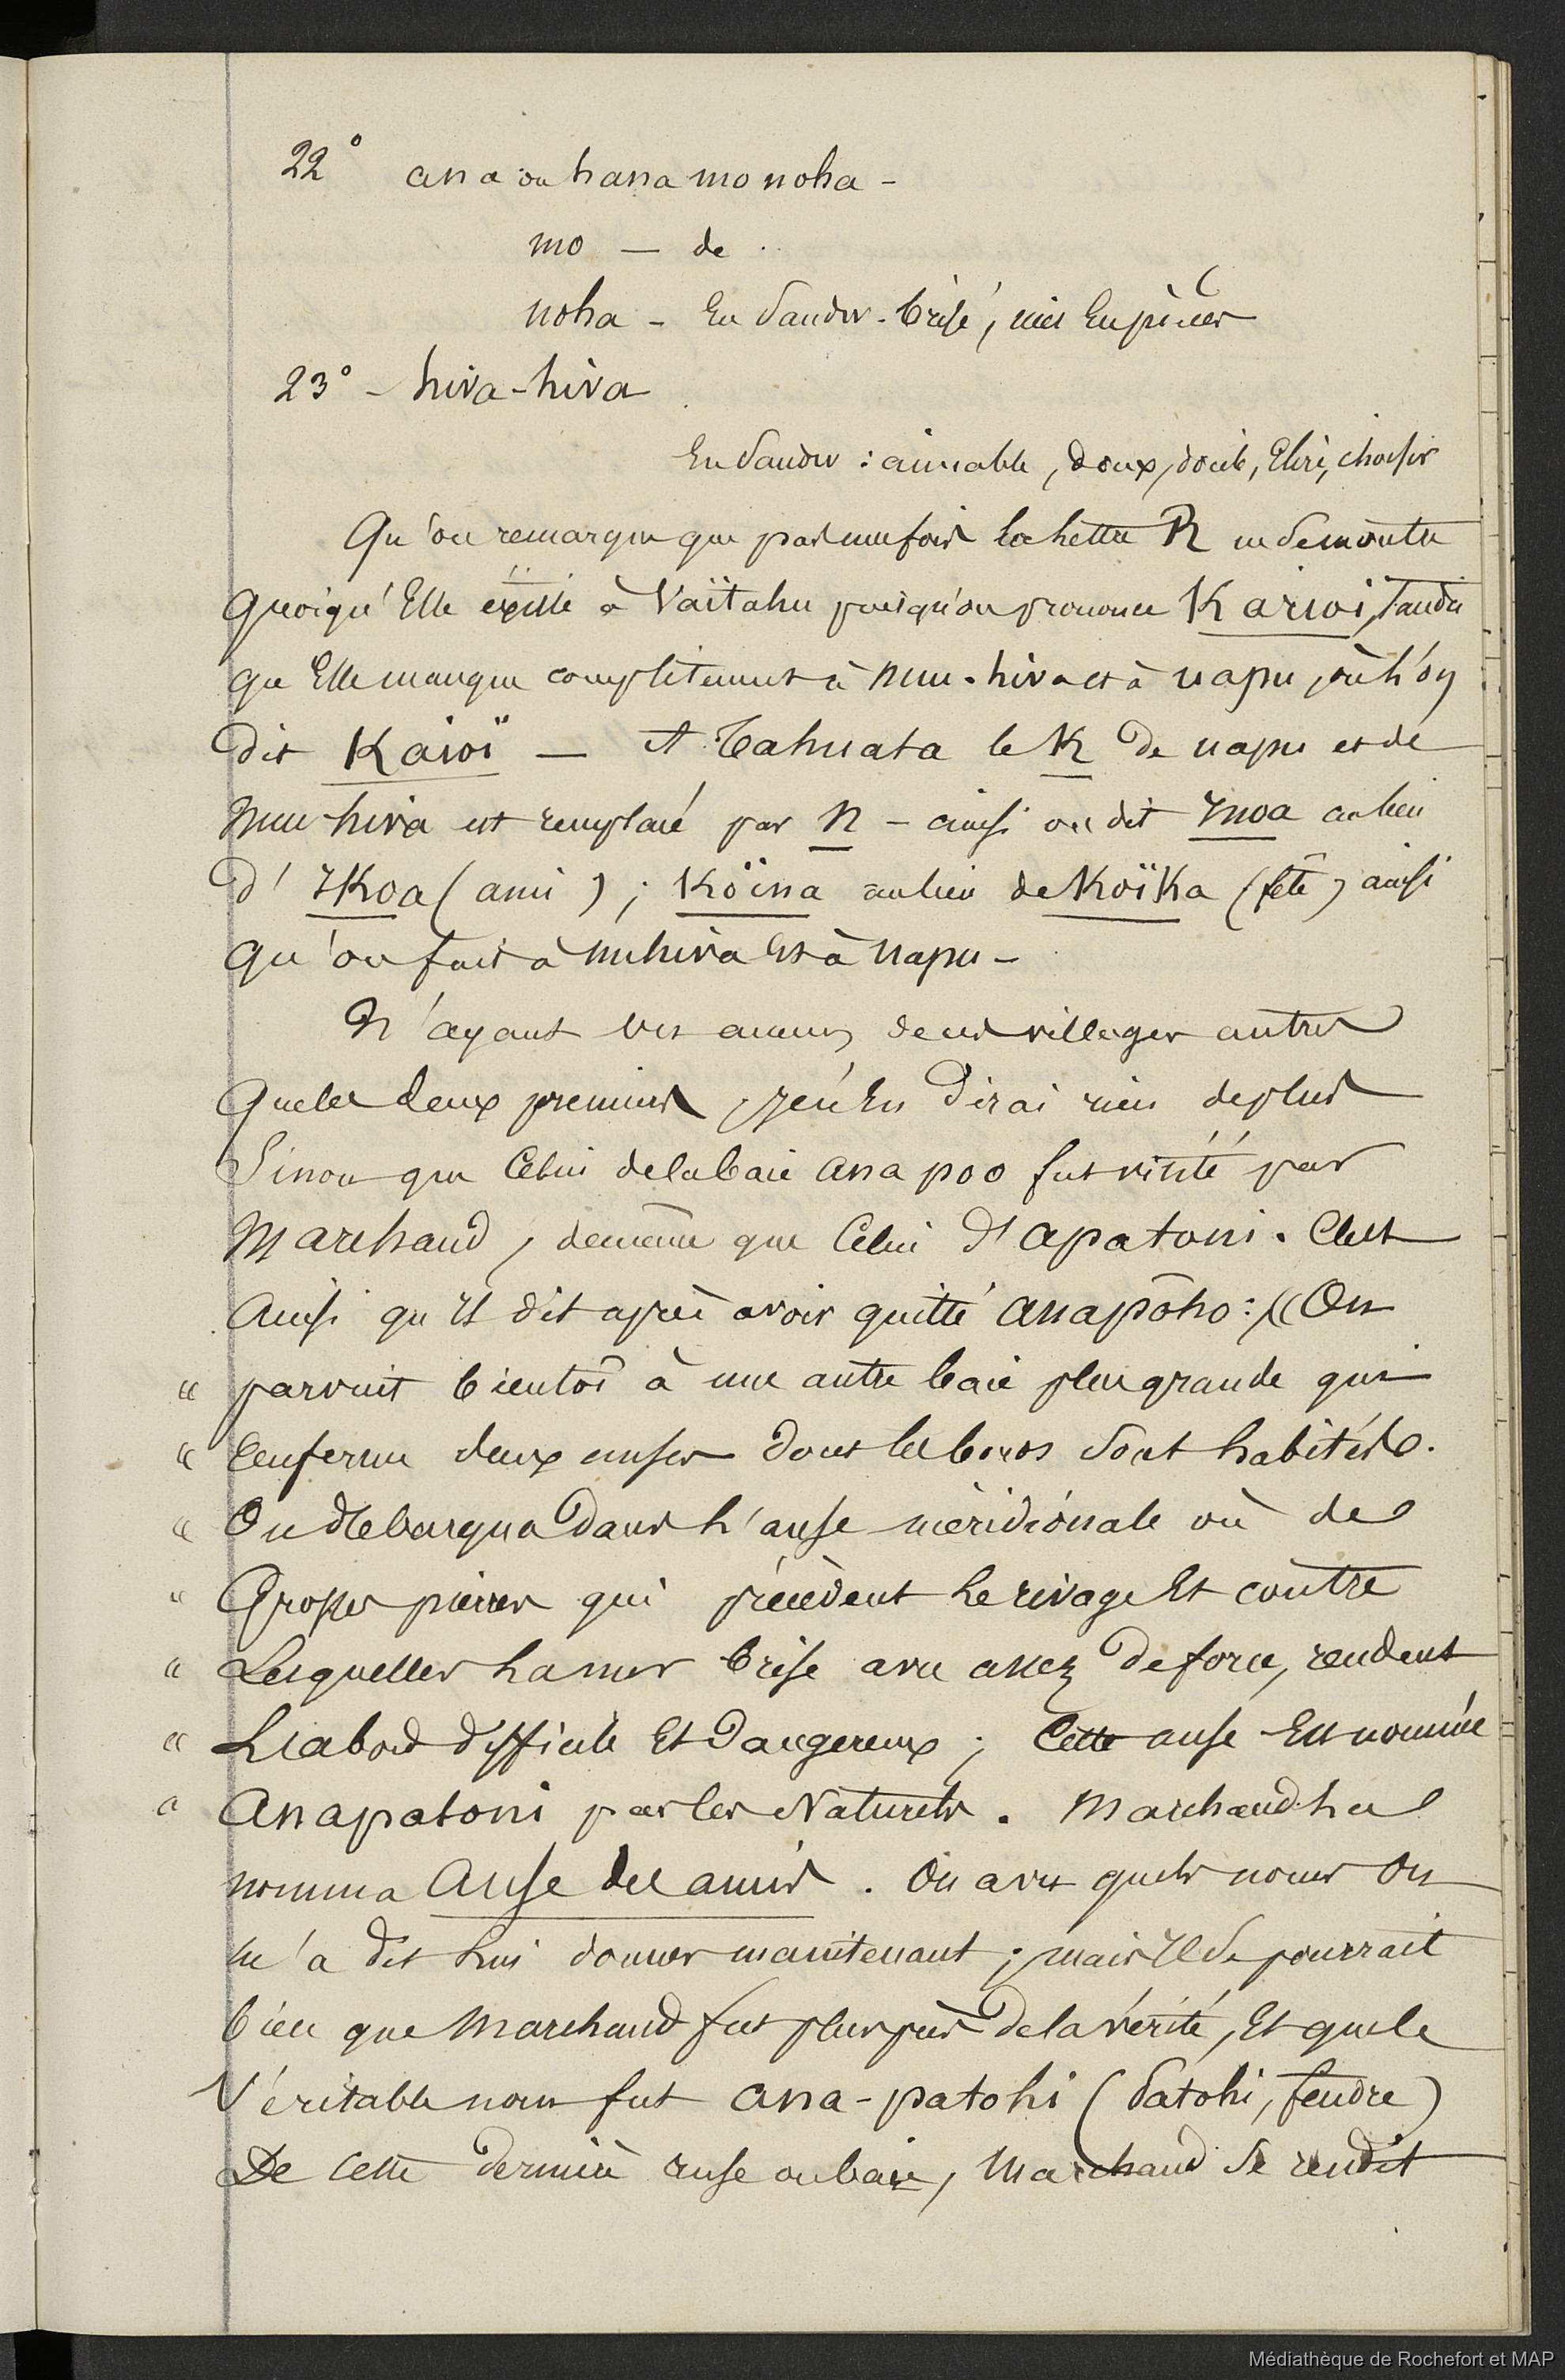 22° ana ou hana mo noha -
mo — de
noha - En Sandw. brisé, mis en pièces
23° - hiva-hiva
En Sandw : aimable, doux, docile, Elire, choisir
Qu'on remarque que pas une fois la lettre R ne se montre
quoiqu'Elle existe à Vaïtahu puisqu'on prononce Karioi, Tandis
qu'Elle manque complètement à nuu-hiva et à uapu, où l'on
dit Kaioï — A Tahuata le K de uapu et de
Nuu-hiva est remplacé par n - ainsi on dit Inoa au lieu
d'Ikoa (ami) ; Koïna au lieu de Koïka (fête) ainsi
qu'on fait à nuhiva Et à Uapu -
N'ayant vu aucun de ces villages autres
Que les deux premiers, je n'En dirai rien de plus
Sinon que Celui de la baie ana poo fut visité par
Marchand, de même que Celui d'apatoni. C'est
Ainsi qu'Il dit après avoir quitté anapōho : « On
« parvint bientôt à une autre baie plus grande qui
« renferme deux anses dont les bords sont habités.
« On débarqua dans l'anse méridionale où de
« Grosses pierres qui précèdent le rivage Et contre
« Lesquelles la mer brise avec assez de force, rendent
« L'abord difficile Et Dangereux ; Cette anse Est nommée
« Anapatoni par les Naturels. Marchand la
nomma Anse des amis. On a vu quels noms On
m'a dit lui donner maintenant ; mais Il se pourrait
bien que Marchand fut plus près de la vérité, Et que le
Véritable nom fut ana-patohi (Patohi, fendre)
De Cette dernière anse ou baie, Marchand se rendit
Médiathèque de Rochefort et MAP